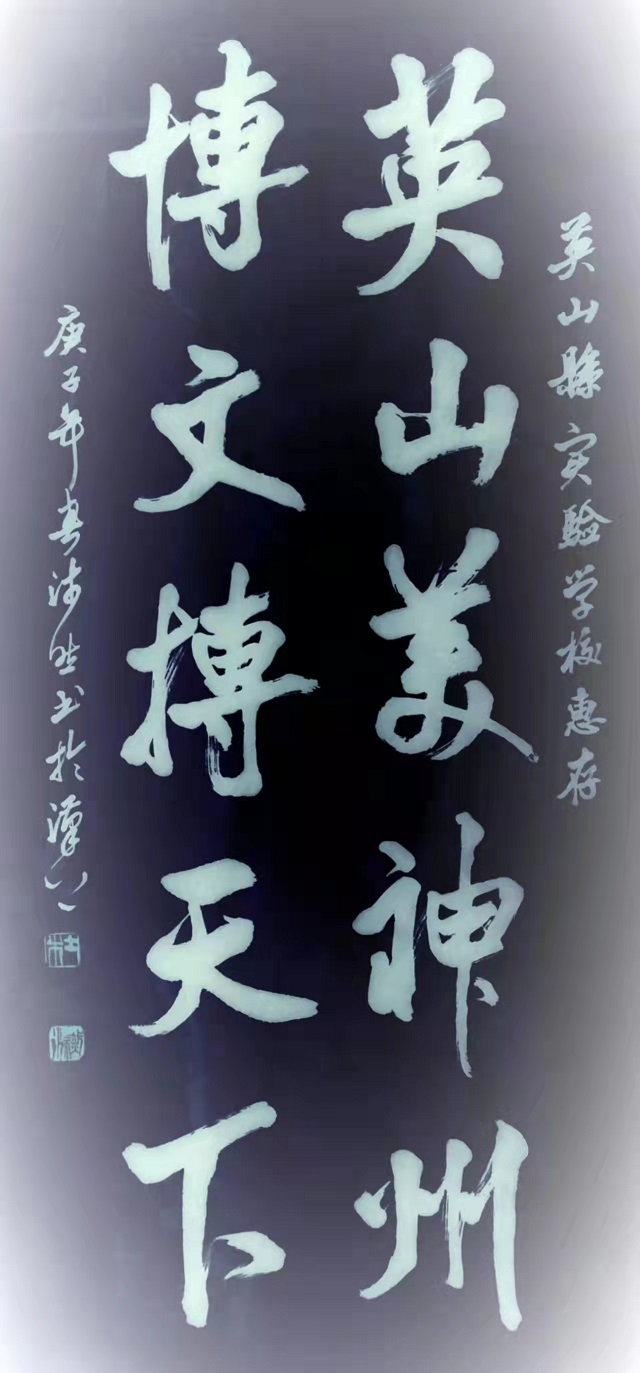 英山縣实驗学校惠存
英山美神州
博文搏天下
庚子年春沛生书於漢口